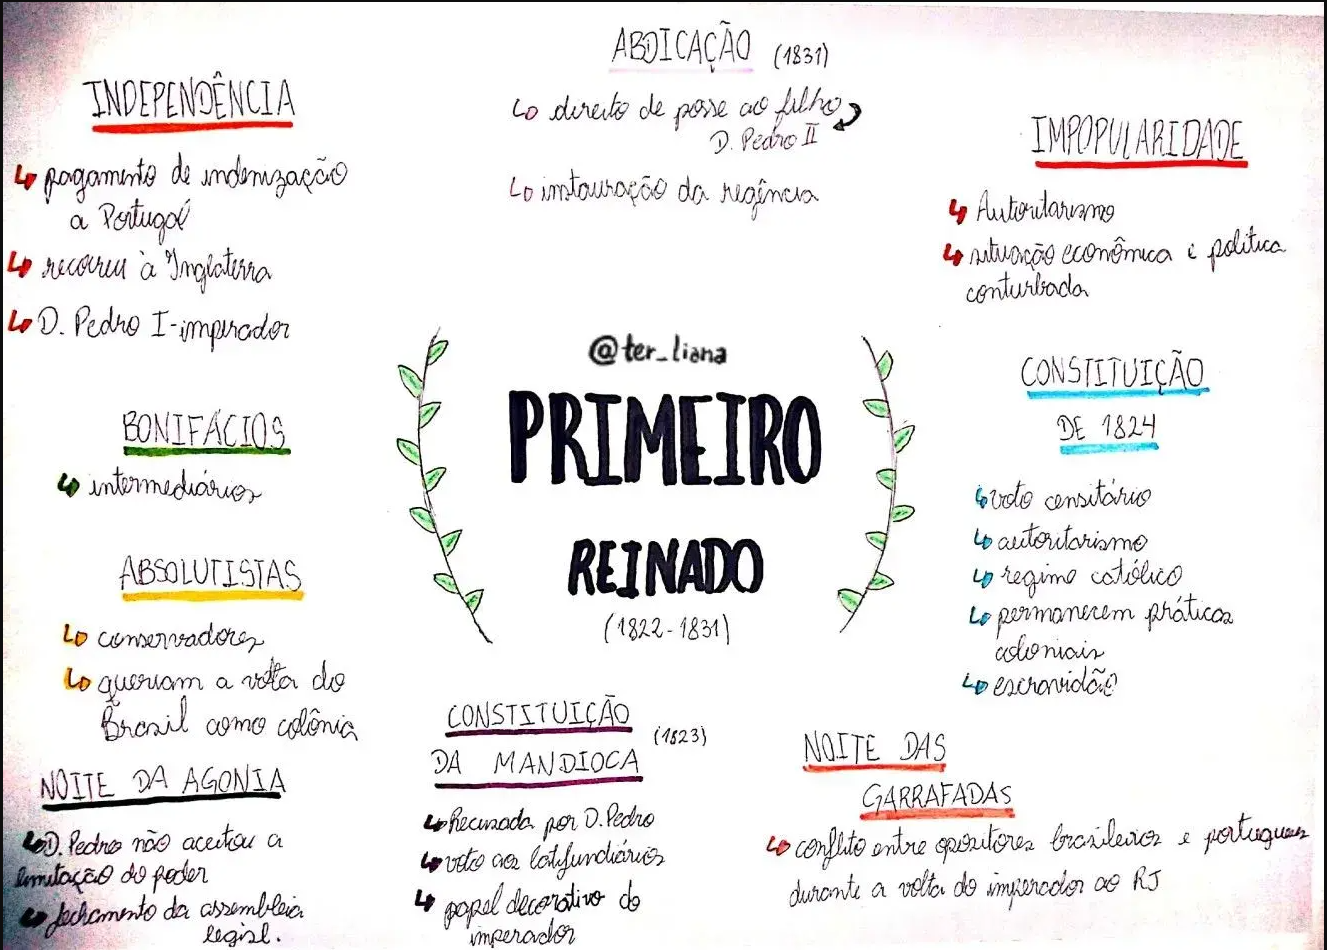 ABDICAÇÃO (1831)
↳ direito de posse ao filho
D. Pedro II
↳ instauração da regência
INDEPENDÊNCIA
↳ pagamento de indenização
a Portugal
↳ recorreu à Inglaterra
↳ D. Pedro I-imperador
BONIFÁCIOS
↳ intermediários
ABSOLUTISTAS
↳ conservadores
↳ queriam a volta do
Brasil como colônia
NOITE DA AGONIA
↳ D. Pedro não aceitou a
limitação do poder
↳ fechamento da assembleia
legisl.
@ter_liana
PRIMEIRO
REINADO
(1822-1831)
CONSTITUIÇÃO
DA MANDIOCA (1823)
↳ Recusada por D. Pedro
↳ voto aos latifundiários
↳ papel decorativo do
imperador
IMPOPULARIDADE
↳ Autoritarismo
↳ situação econômica e política
conturbada
CONSTITUIÇÃO
DE 1824
↳ voto censitário
↳ autoritarismo
↳ regime católico
↳ permanecem práticas
coloniais
↳ escravidão
NOITE DAS
GARRAFADAS
↳ conflito entre opositores brasileiros e portugueses
durante a volta do imperador ao RJ